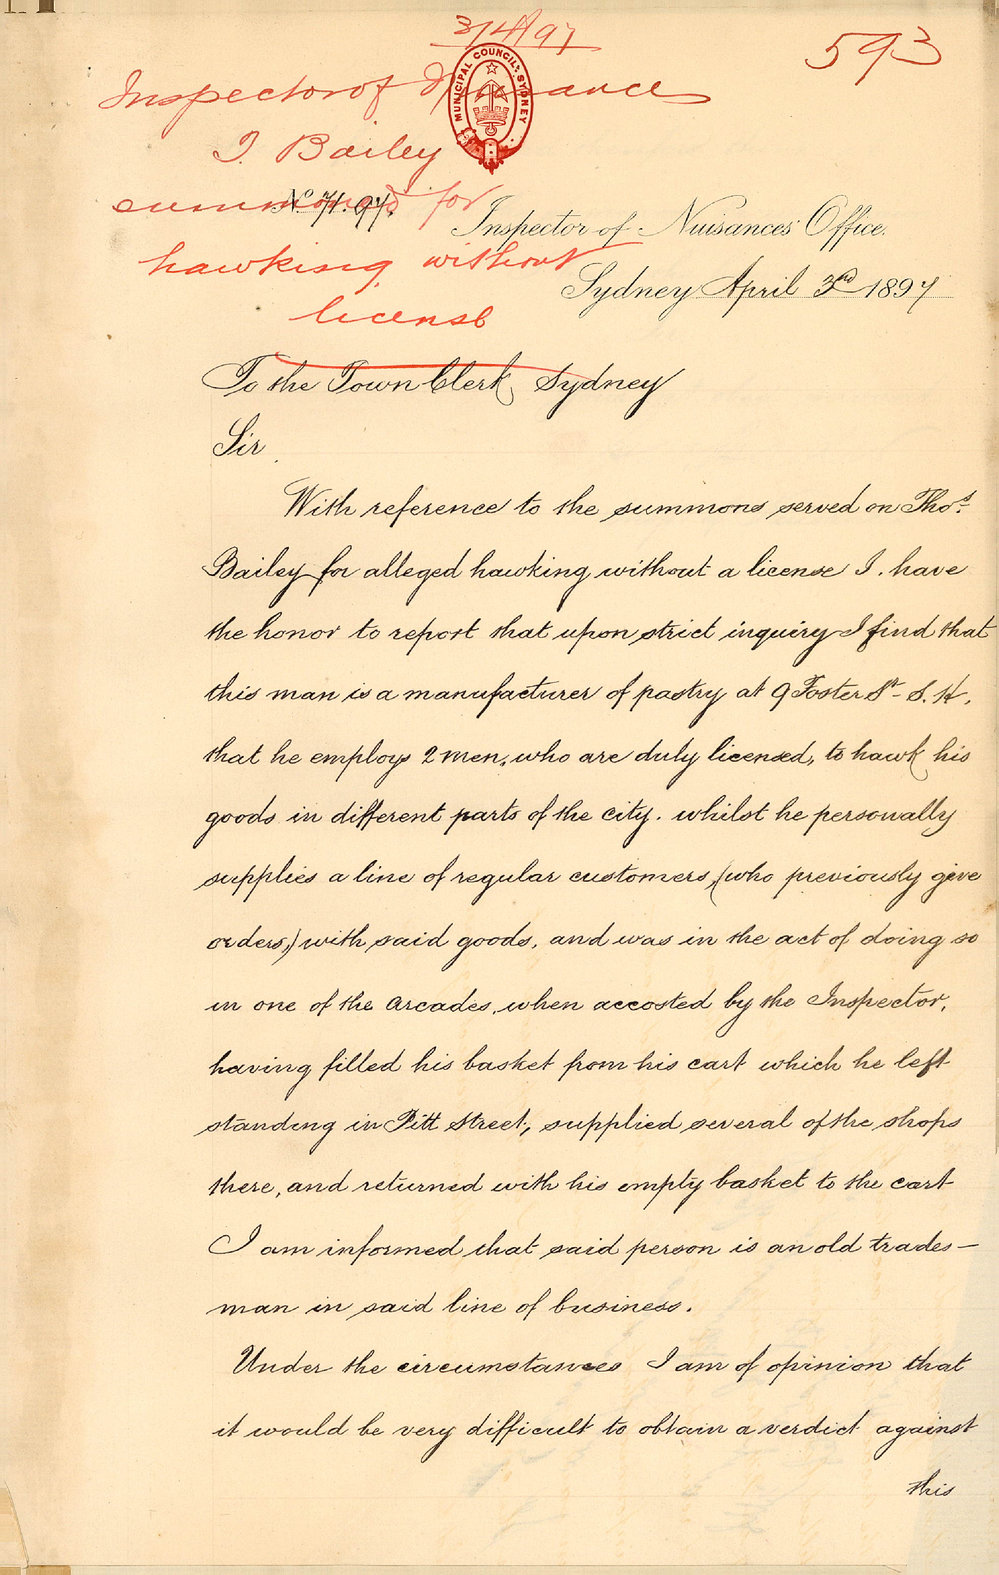 3/4/97
593
Inspector of Nuisances
MUNICIPAL COUNCIL. SYDNEY
T. Bailey
summoned for
No. 71.97.
Inspector of Nuisances' Office.
hawking without
Sydney April 3rd 1897
license
To the Town Clerk, Sydney
Sir
With reference to the summons served on Thos.
Bailey for alleged hawking without a license I have
the honor to report that upon strict inquiry I find that
this man is a manufacturer of pastry at 9 Foster St - S.H.,
that he employs 2 men, who are duly licensed, to hawk his
goods in different parts of the city. whilst he personally
supplies a line of regular customers, (who previously give
orders,) with said goods, and was in the act of doing so
in one of the arcades, when accosted by the Inspector,
having filled his basket from his cart which he left
standing in Pitt Street, supplied several of the shops
there, and returned with his empty basket to the cart
I am informed that said person is an old trades-
man in said line of business.
Under the circumstances I am of opinion that
it would be very difficult to obtain a verdict against
this